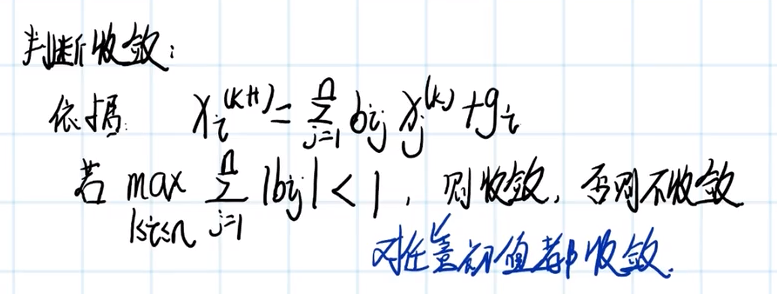 判断收敛：
依据 x_i^{(k+1)} = \sum_{j=1}^{n} b_{ij} x_j^{(k)} + g_i
若 \max_{1≤i≤n} \sum_{j=1}^{n} |b_{ij}| < 1，则收敛，否则不收敛
对任意初值都收敛.